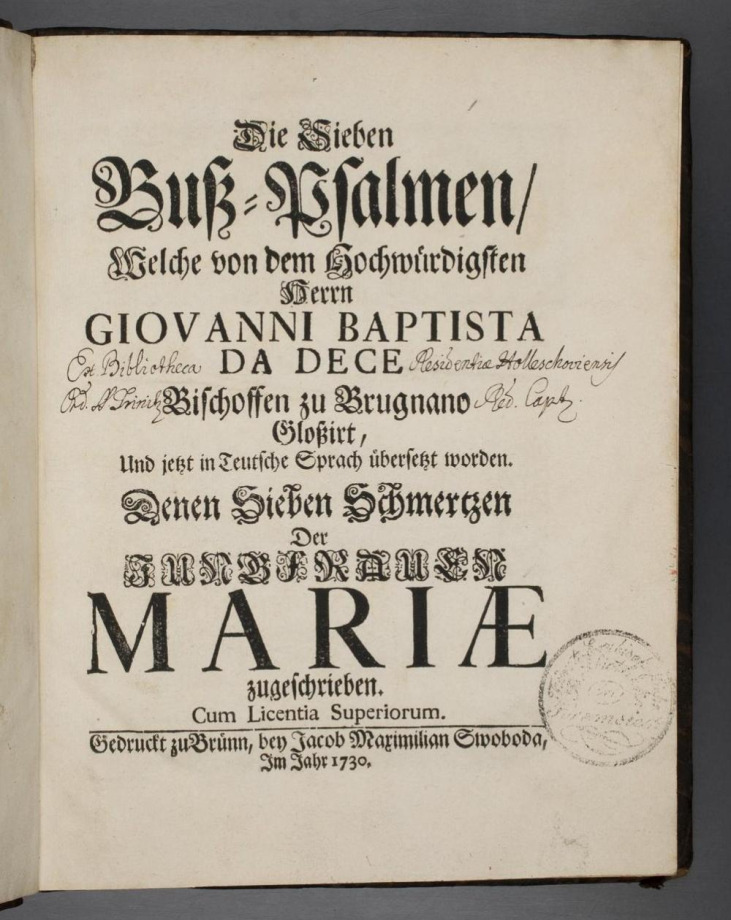 Die Sieben
Buß-Psalmen/
Welche von dem Hochwürdigsten
Herrn
GIOVANNI BAPTISTA
Ex Bibliotheca DA DECE Residentiæ Holleschoviensis
Ord. Bischoffen zu Brugnano Red. Capt.
Gloßirt,
Und jetzt in Teutsche Sprach übersetzt worden.
Denen Sieben Schmertzen
Der
JUNGFRAUEN
MARIÆ
zugeschrieben.
Cum Licentia Superiorum.
Gedruckt zu Brünn, bey Jacob Maximilian Swoboda,
Im Jahr 1730.